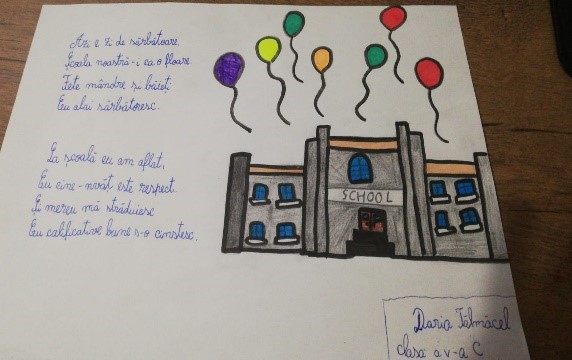 Azi e zi de sărbătoare.
Școala noastră-i ca o floare.
Fete mândre și băieți
Cu alai sărbătoresc.
La școală eu am aflat,
Cu cine-nvăț este respect.
Și mereu mă străduiesc
Cu calificative bune s-o cinstesc.
SCHOOL
Daria Tălmăcel
clasa a V-a C